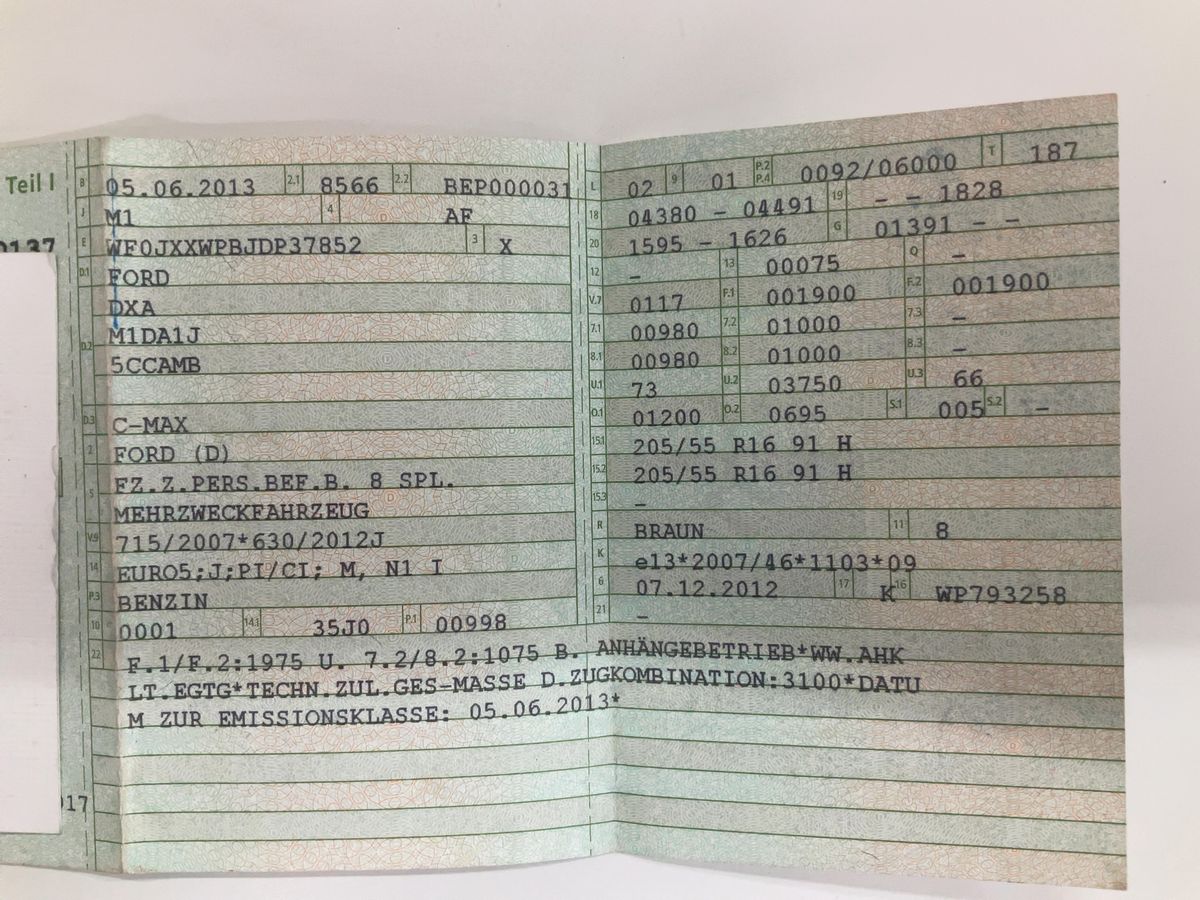 Teil I
0137
017
B 05.06.2013 2.1 8566 2.2 BEP000031
J M1 4 AF
E WF0JXXWPBJDP37852 3 X
D.1 FORD
DXA
D.2 M1DA1J
5CCAMB
D.3 C-MAX
2 FORD (D)
5 FZ.Z.PERS.BEF.B. 8 SPL.
MEHRZWECKFAHRZEUG
V.9 715/2007*630/2012J
14 EURO5;J;PI/CI; M, N1 I
P.3 BENZIN
10 0001 14.1 35J0 P.1 00998
L 02 9 01 P.2 P.4 0092/06000 T 187
18 04380 - 04491 19 - - 1828
20 1595 - 1626 G 01391 - -
12 - 13 00075 Q -
V.7 0117 F.1 001900 F.2 001900
7.1 00980 7.2 01000 7.3 -
8.1 00980 8.2 01000 8.3 -
U.1 73 U.2 03750 U.3 66
O.1 01200 O.2 0695 S.1 005 S.2 -
15.1 205/55 R16 91 H
15.2 205/55 R16 91 H
15.3 -
R BRAUN 11 8
K e13*2007/46*1103*09
6 07.12.2012 17 K 16 WP793258
21 -
22 F.1/F.2:1975 U. 7.2/8.2:1075 B. ANHÄNGEBETRIEB*WW.AHK
LT.EGTG*TECHN.ZUL.GES-MASSE D.ZUGKOMBINATION:3100*DATU
M ZUR EMISSIONSKLASSE: 05.06.2013*